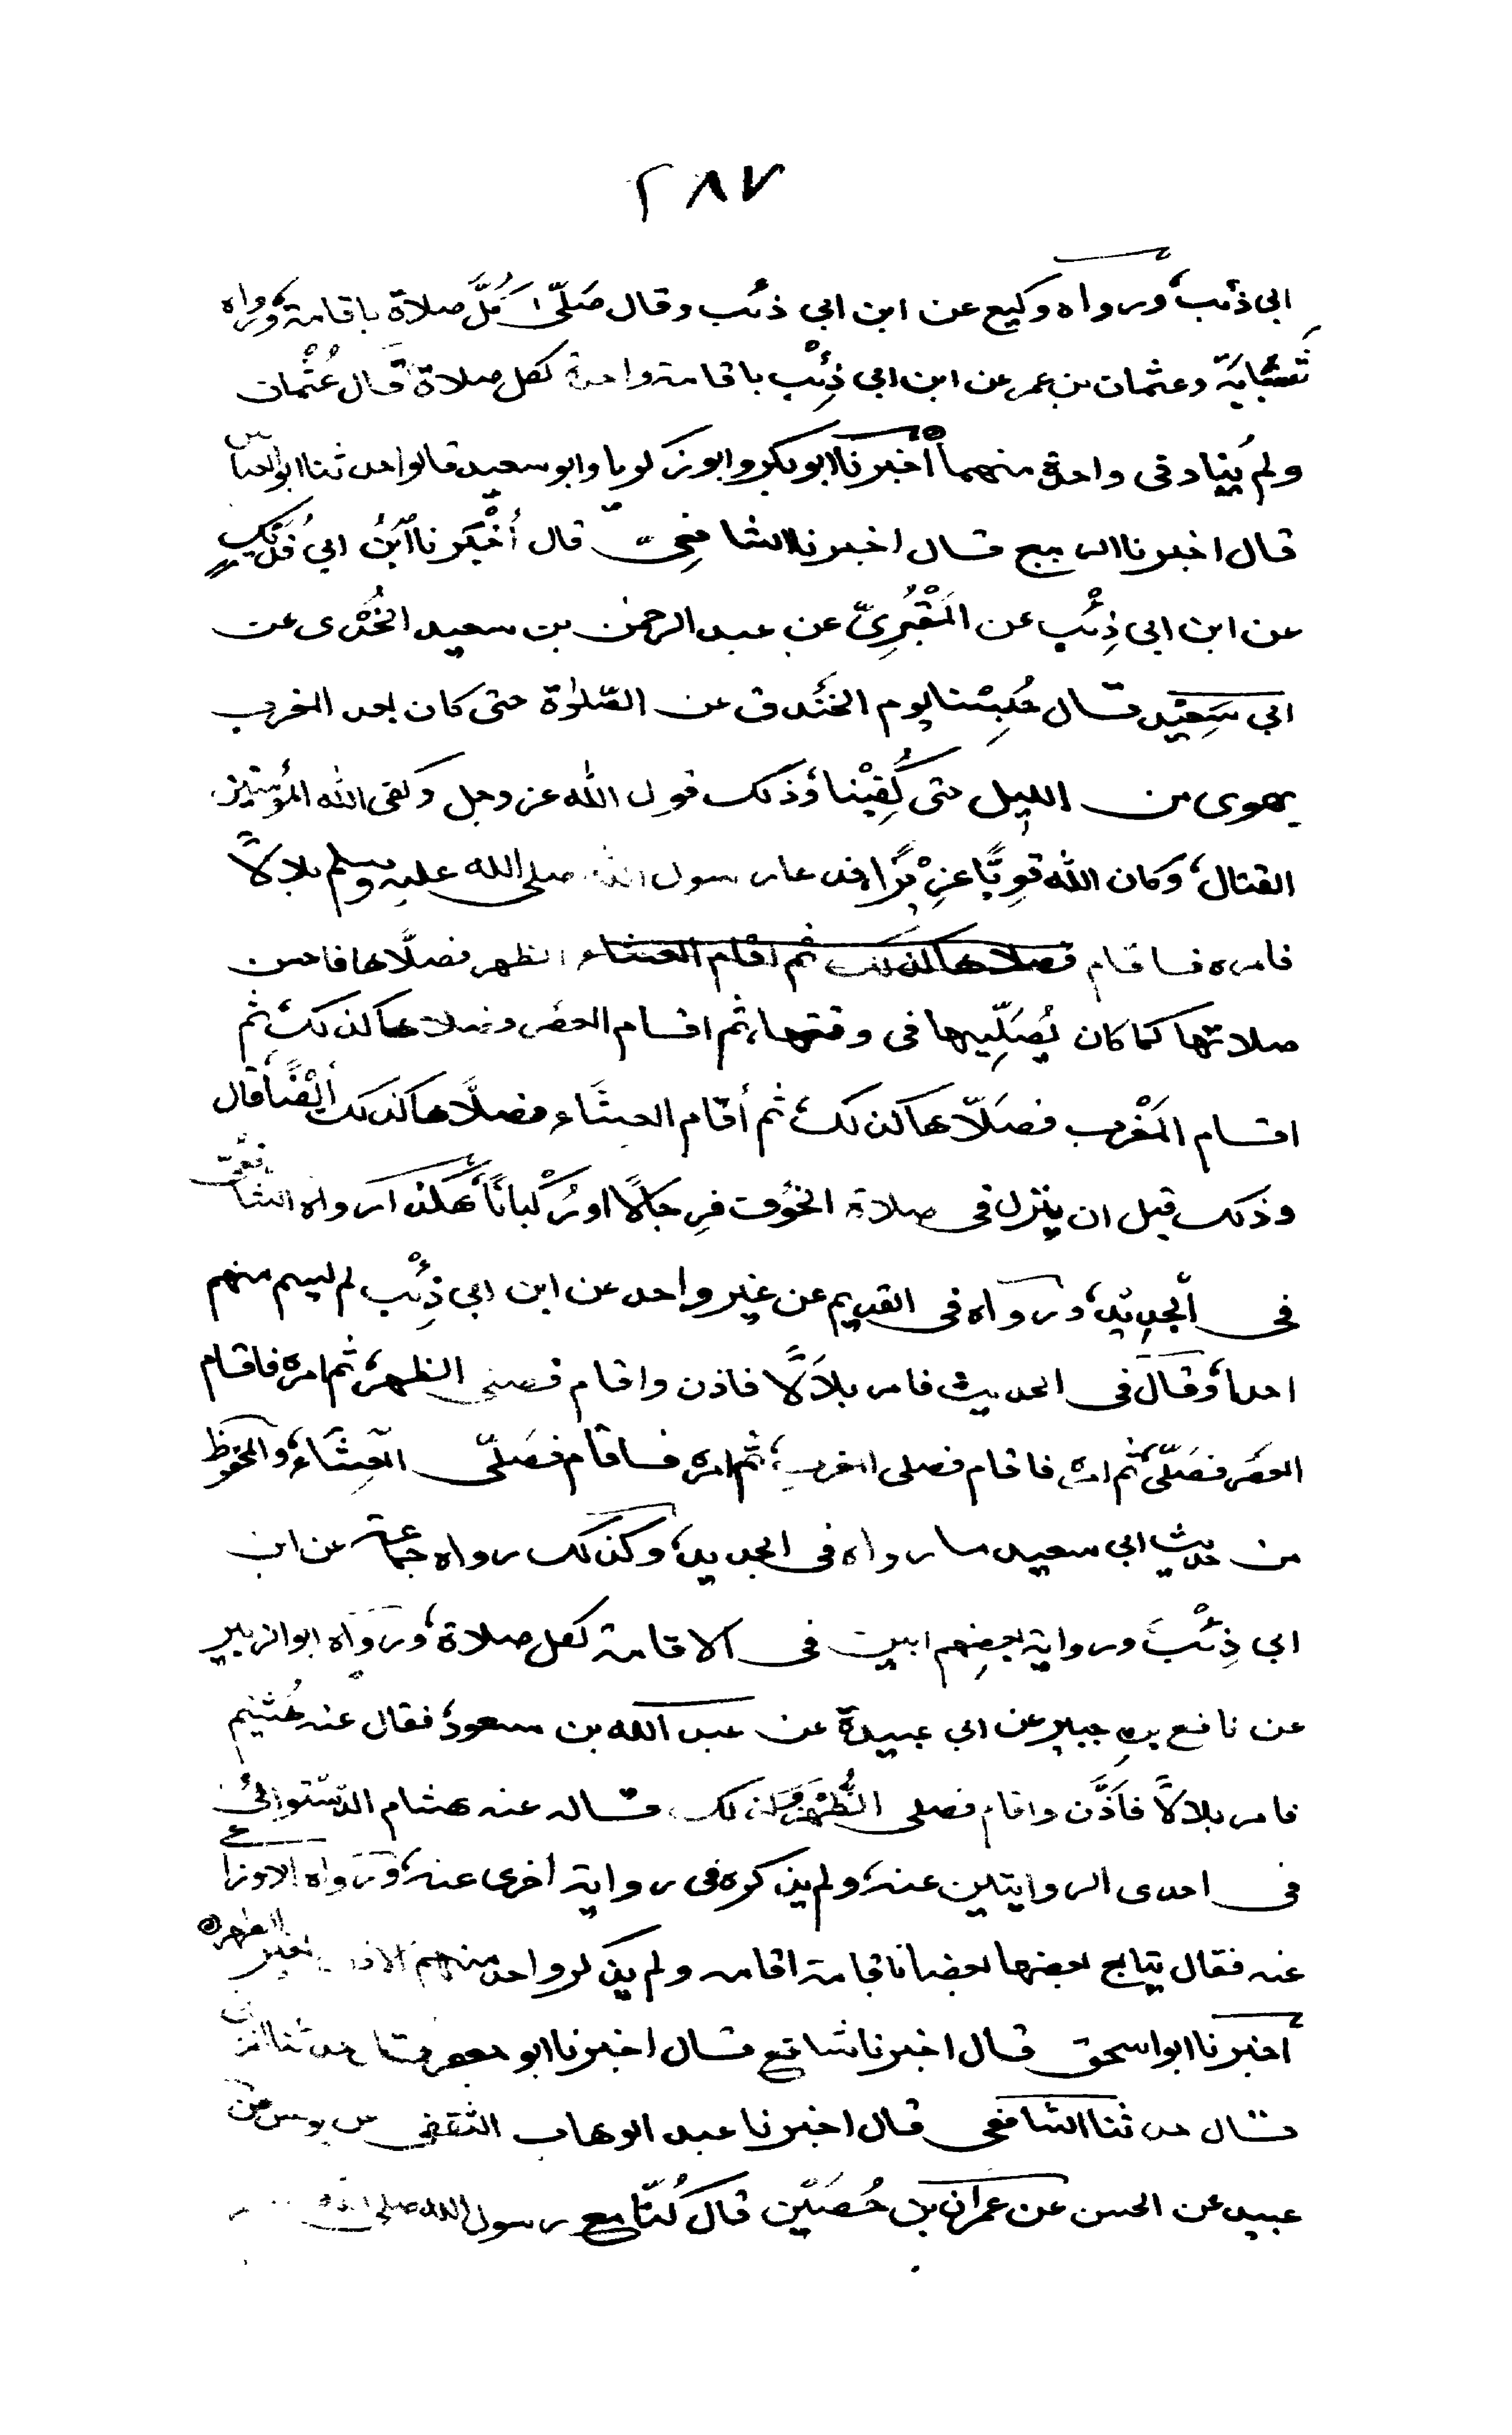 ٢٨٧
ابی ذئب، ورواه وکیع عن ابن ابی ذئب وقال صَلّی کُلَّ صلاة باقامة، ورواه
شَبَابَة وعثمان بن عمر عن ابن ابی ذِئْب باقامة واحدة لکل صلاة قال عُثْمان
ولم یُناد فی واحدة منهما أخبرنا ابوبکر وابوزکریا وابوسعید قالوا حدثنا ابوالعباس
قال اخبرنا الربیع قال اخبرنا الشافِعِیّ قال أُخْبَرنا ابْنُ ابی فُدَیْک
عن ابن ابی ذِئْب عن المَقْبُرِیّ عن عبد الرحمن بن سعید الخُدْری عن
ابی سَعِیْد قال حُبِسْنا یوم الخَنْدق عن الصَّلوٰة حتی کان بعد المغرب
یهوی من اللیل حتی کُفِیْنا، وذلک قول الله عز وجل وکفی الله المُؤمنین
القتال، وکان الله قَوِیًّا عَزِیْزًا، فدعا رسول الله صلی الله علیه وسلم بلالًا
فامره فاقام فصلاها کذلک ثم اقام العشاء الظهر فصلَّاها فاحسن
صلاتها کما کان یُصَلِّیها فی وقتها، ثم اقام العصر وصلاها کذلک، ثم
اقام المَغْرب فصَلّاها کذلک، ثم أقام العِشَاء فصلَّاها کذلک أیْضًا، قال
وذلک قبل ان ینزل فی صلاة الخَوْف فرِجَالًا اورُکْبانًا، هکذا رواه الشافعیّ
فی الجدید، ورواه فی القدیم عن غیر واحد عن ابن ابی ذِئْب لم یسم منهم
احدا، وقال فی الحدیث فامر بلاَلًا فاذن واقام فصلی الظهر، ثم امره فاقام
العصر فصَلّی، ثم امره فاقام فصلی المغرب، ثم امره فاقام فصَلّی العِشَاء، والمحفوظ
من حدیث ابی سعید ما رواه فی الجدید، وکذلک رواه جماعة عن ابن
ابی ذِئْب، وروایة بعضهم ابین فی الاقامة لکل صلاة، ورواه ابوالزبیر
عن نافع بن جبیر عن ابی عبیدة عن عبد الله بن مسعود، فقال عنه هُشَیْم
فامر بلالًا فَاَذَّن واقام فصلی الظُّهْرَ، وکذلک قاله عنه هشام الدَّسْتوائی
فی احدی الروایتین عنه، ولم یذکره فی روایة أخری عنه، ورواه الاوزاعی
عنه فقال یتابع بعضها بعضا باقامة اقامه ولم یذکر واحد منهم الاذان لغیر الظهر
أخبرنا ابواسحق قال اخبرنا شافع قال اخبرنا ابوجعفر قال حدثنا المزنی
قال حدثنا الشافعی قال اخبرنا عبد الوهاب الثقفی عن یونس بن
عبید عن الحسن عن عمران بن حُصَیْن قال کُنّا مع رسول الله صلی الله